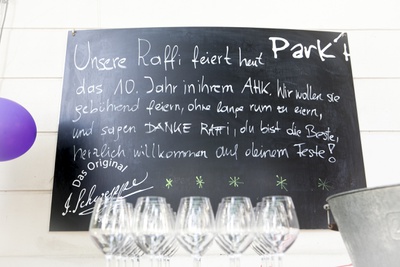 Unsere Raffi feiert heut
Park'
das 10. Jahr in ihrem AHK. Wir wollen sie
gebührend feiern, ohne lange rum zu eiern,
und sagen DANKE RAFFI, du bist die Beste,
herzlich willkommen auf deinem Feste!
Das Original
J. Schweppe